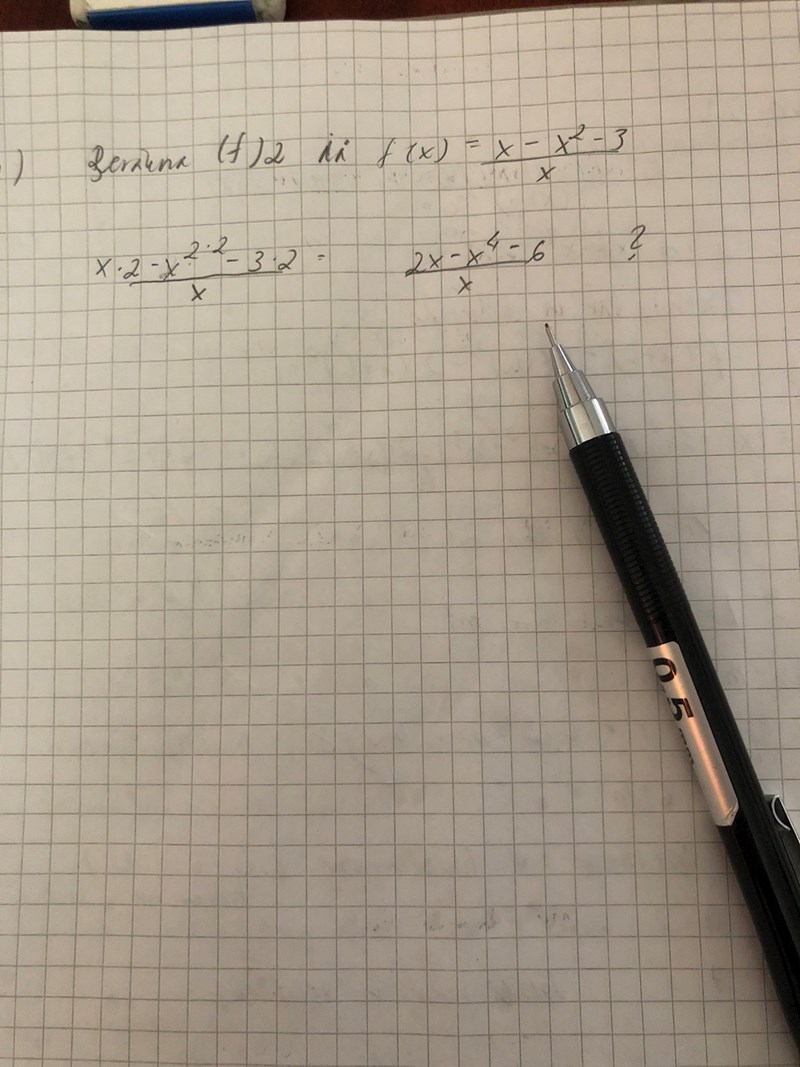 ) Beräkna (f)2 då f(x) = \frac{x - x^2 - 3}{x}
\frac{x·2 - x^{2·2} - 3·2}{x} = \frac{2x - x^4 - 6}{x} ?
0.5